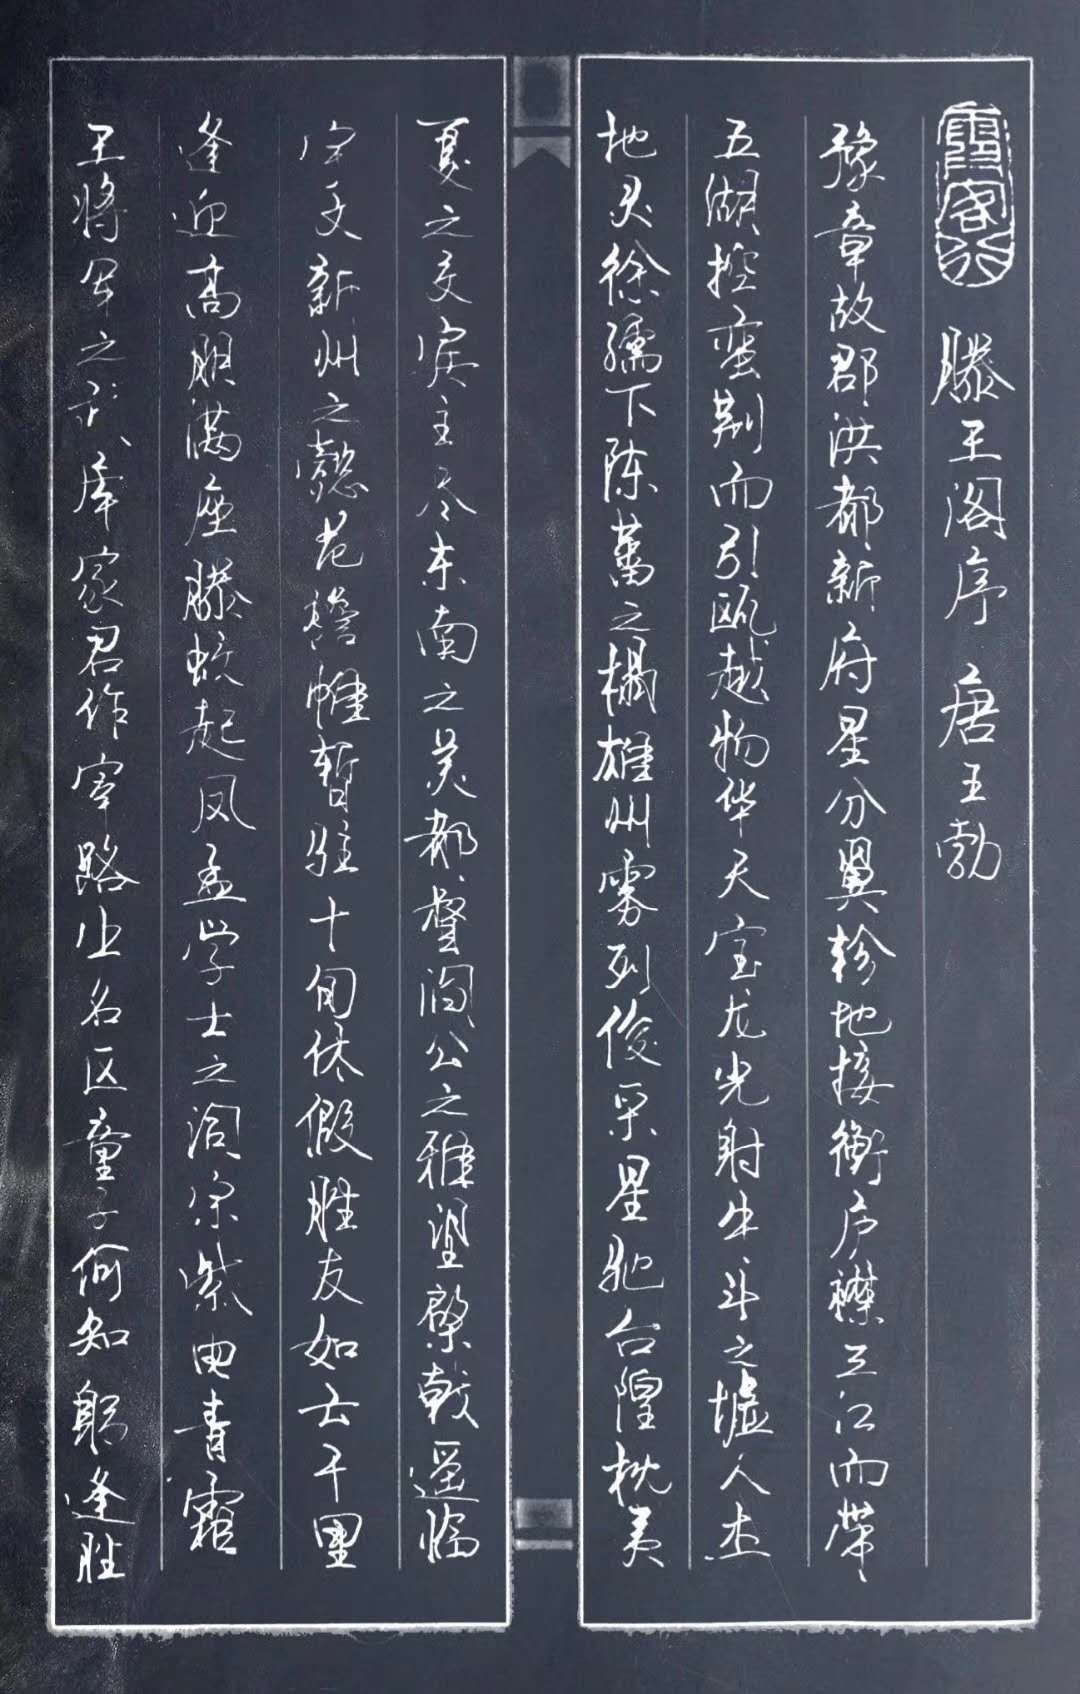 滕王阁序 唐王勃
豫章故郡洪都新府星分翼轸地接衡庐襟三江而带
五湖控蛮荆而引瓯越物华天宝龙光射牛斗之墟人杰
地灵徐孺下陈蕃之榻雄州雾列俊采星驰台隍枕夷
夏之交宾主尽东南之美都督阎公之雅望棨戟遥临
宇文新州之懿范襜帷暂驻十旬休假胜友如云千里
逢迎高朋满座腾蛟起凤孟学士之词宗紫电青霜
王将军之武库家君作宰路出名区童子何知躬逢胜